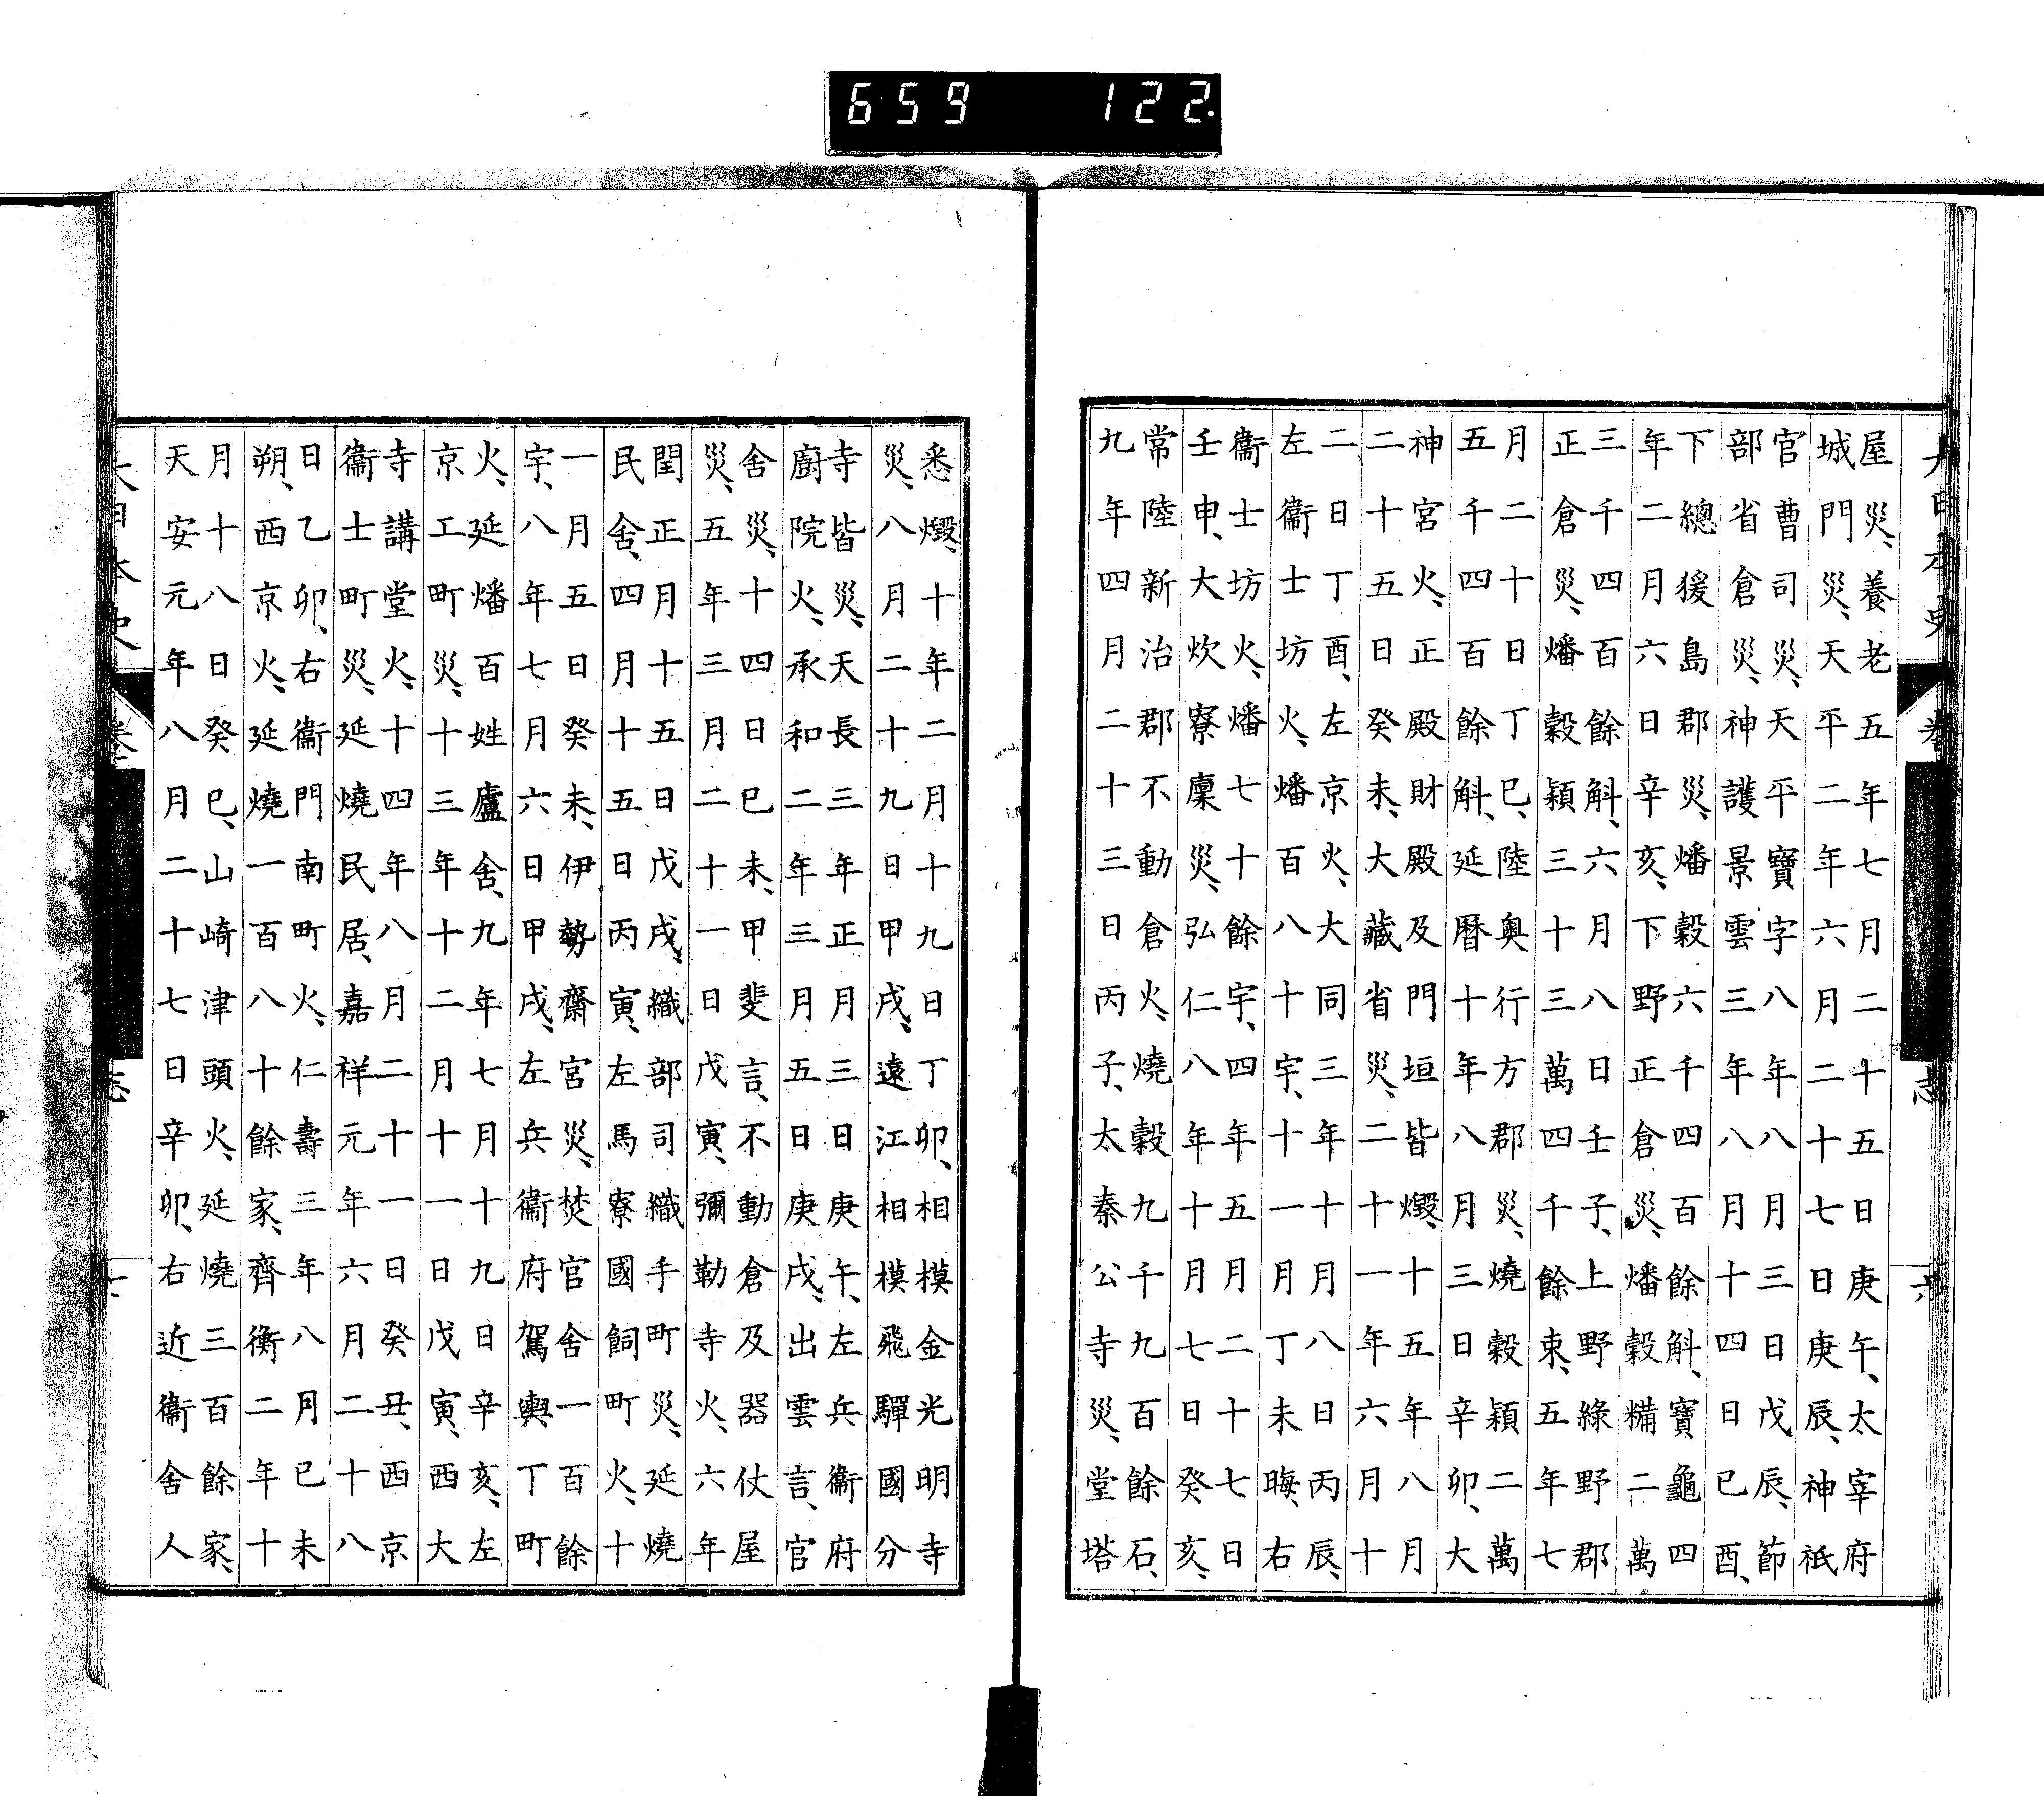 659 122
大日本史 卷 志 六
屋災、養老五年七月二十五日庚午、太宰府
城門災、天平二年六月二十七日庚辰、神祇
官曹司災、天平寶字八年八月三日戊辰、節
部省倉災、神護景雲三年八月十四日己酉、
下總猨島郡災、燔穀六千四百餘斛、寶龜四
年二月六日辛亥、下野正倉災、燔穀糒二萬
三千四百餘斛、六月八日壬子、上野綠野郡
正倉災、燔穀穎三十三萬四千餘束、五年七
月二十日丁巳、陸奧行方郡災、燒穀穎二萬
五千四百餘斛、延曆十年八月三日辛卯、大
神宮火、正殿財殿及門垣皆燬、十五年八月
二十五日癸未、大藏省災、二十一年六月十
二日丁酉、左京火、大同三年十月八日丙辰、
左衞士坊火、燔百八十宇、十一月丁未晦、右
衞士坊火、燔七十餘宇、四年五月二十七日
壬申、大炊寮廩災、弘仁八年十月七日癸亥、
常陸新治郡不動倉火、燒穀九千九百餘石、
九年四月二十三日丙子、太秦公寺災、堂塔
悉燬、十年二月十九日丁卯、相模金光明寺
災、八月二十九日甲戌、遠江相模飛驒國分
寺皆災、天長三年正月三日庚午、左兵衞府
廚院火、承和二年三月五日庚戌、出雲言、官
舍災、十四日己未、甲斐言、不動倉及器仗屋
災、五年三月二十一日戊寅、彌勒寺火、六年
閏正月十五日戊戌、織部司織手町災、延燒
民舍、四月十五日丙寅、左馬寮國飼町火、十
一月五日癸未、伊勢齋宮災、焚官舍一百餘
宇、八年七月六日甲戌、左兵衞府駕輿丁町
火、延燔百姓廬舍、九年七月十九日辛亥、左
京工町災、十三年十二月十一日戊寅、西大
寺講堂火、十四年八月二十一日癸丑、西京
衞士町災、延燒民居、嘉祥元年六月二十八
日乙卯、右衞門南町火、仁壽三年八月己未
朔、西京火、延燒一百八十餘家、齊衡二年十
月十八日癸巳、山崎津頭火、延燒三百餘家、
天安元年八月二十七日辛卯、右近衞舍人
大日本史 卷 志